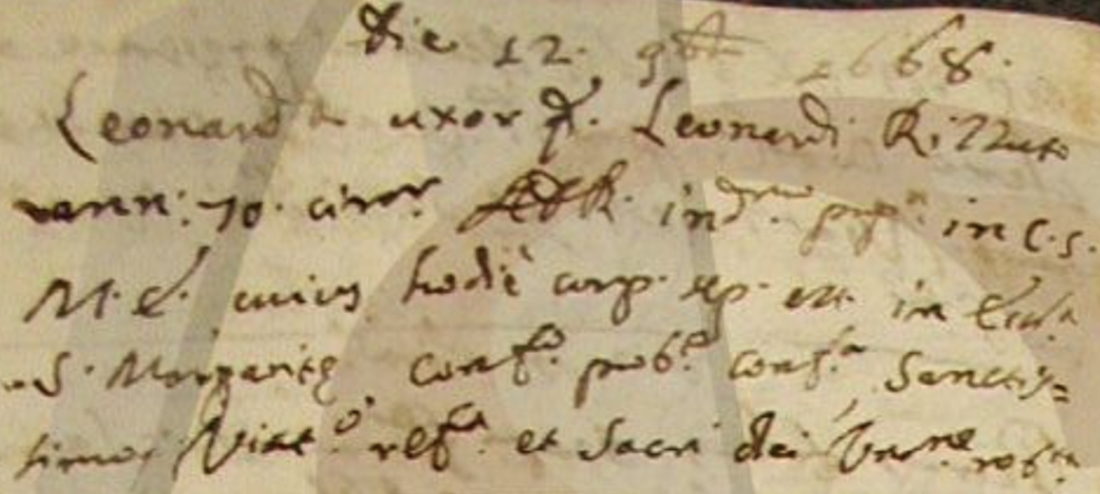 Die 12. 9bris 1668.
Leonarda uxor q. Leonardi Rizzuto
ann: 70. circr. in domo propa in C.S.
M.E. cuius hodie corp. sep. est in Eccla
S. Margaritę conf. prob. confa Sanctis=
simo Viatco refa et Sacri olei Unne robta